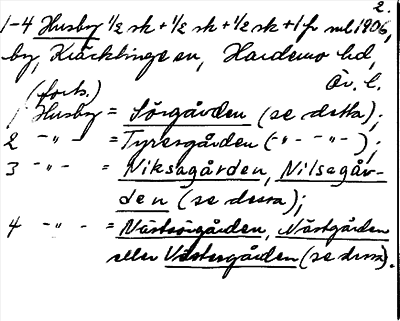 2.
1-4 Husby ½ sk + ½ sk + ½ sk + 1 fr ml 1906,
by, Kräcklinge sn, Hardemo hd,
Ör. l.
(forts.)
1 Husby = Sörgården (se detta);
2 -"- = Tyresgården (-"- -"-);
3 -"- = Niksagården, Nilsagår-
den (se dessa);
4 -"- = Nästsörgården, Nästgården
eller Västergården (se dessa).